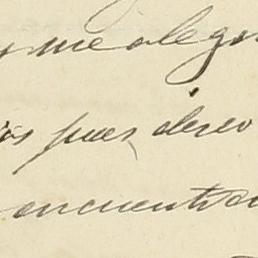 y me alegr
os pues deseo
encuentra